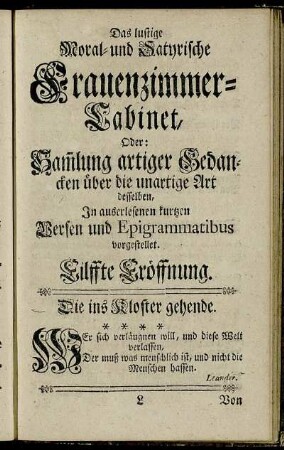 Das lustige
Moral- und Satyrische
Frauenzimmer-
Cabinet,
Oder:
Sam̃lung artiger Gedan-
cken über die unartige Art
desselben,
In auserlesenen kurtzen
Versen und Epigrammatibus
vorgestellet.
Eilffte Eröffnung.
Die ins Kloster gehende.
* * * *
WEr sich verläugnen will, und diese Welt
verlassen,
Der muß was menschlich ist, und nicht die
Menschen hassen.
Leander.
L Von